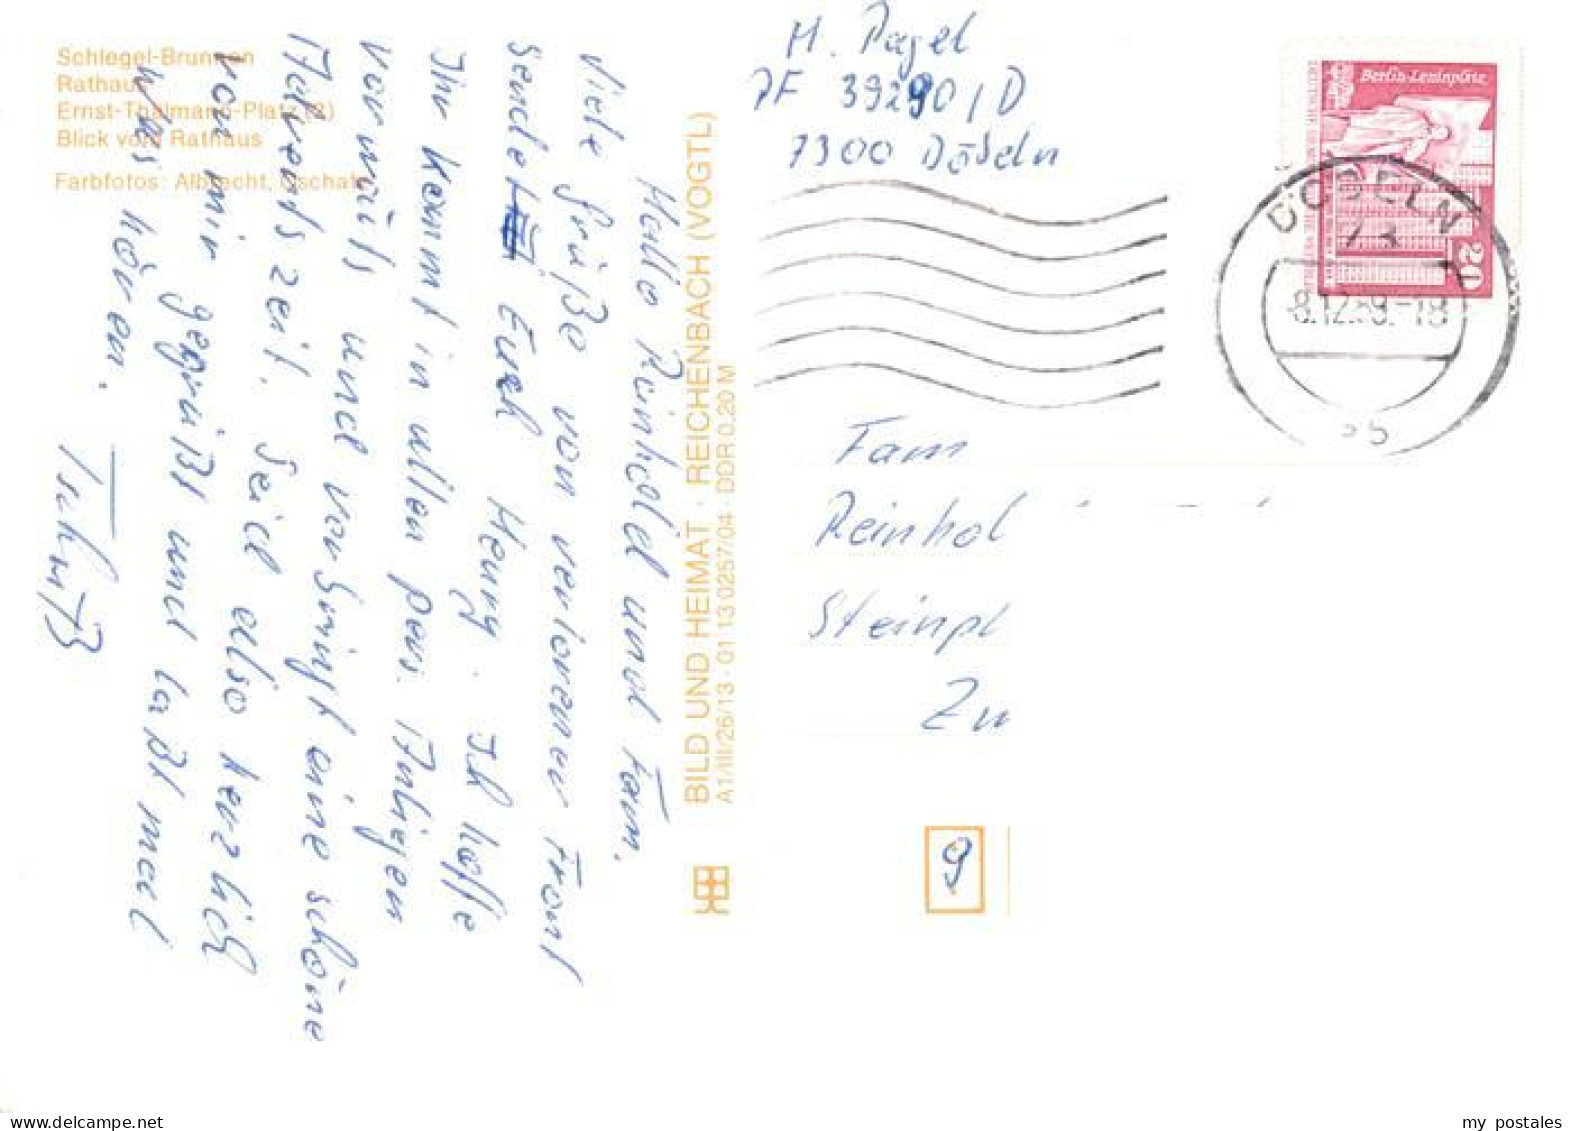 Schlegel-Brunnen
Rathaus
Ernst-Thälmann-Platz (2)
Blick vom Rathaus
Farbfotos: Albrecht, Oschatz
Hallo Reinhold und Fam.
Viele Grüße von vorderer Front
sendet Euch Henry. Ich hoffe
Ihr kommt in allen pers. Anliegen
vorwärts und verbringt eine schöne
Adventszeit. Seid also herzlich
von mir gegrüßt und laßt mal
was hören.
Tschüß
BILD UND HEIMAT · REICHENBACH (VOGTL)
A1/III/26/13 · 01 13 0257/04 · DDR 0.20 M
H. Pagel
PF 39290/D
7300 Döbeln
Berlin-Leninplatz
20
DÖBELN
73
-8.12.89.-18
Fam
Reinhol
Steinpl
Zu
9
my postales